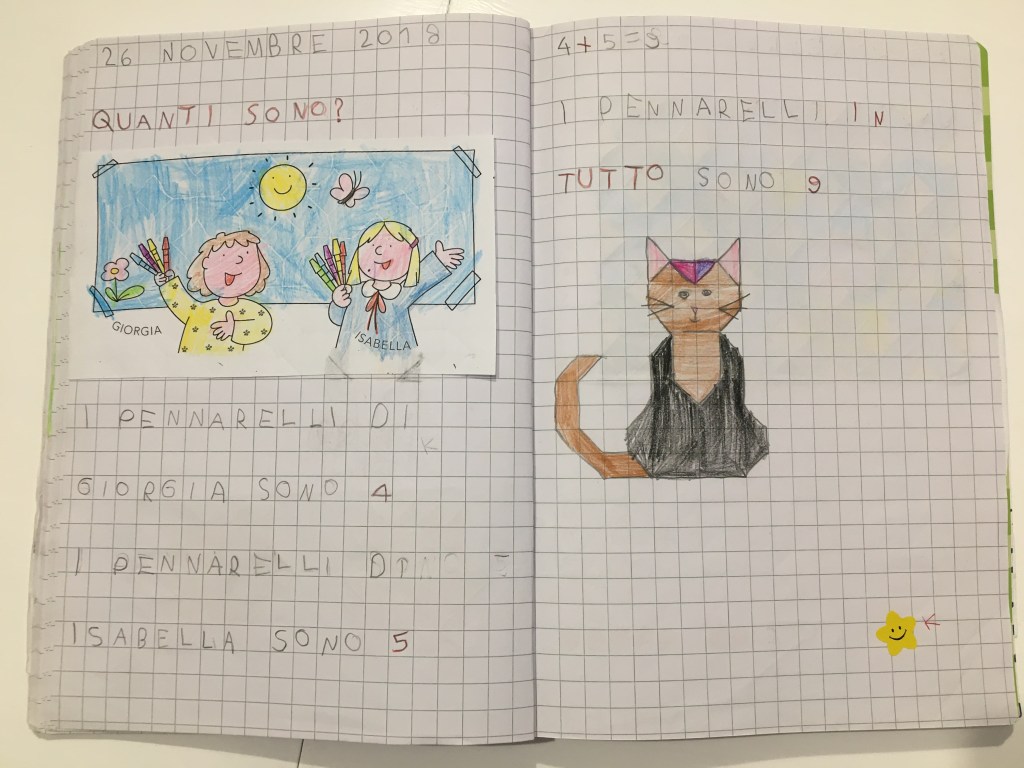 26 NOVEMBRE 2018
QUANTI SONO?
GIORGIA
ISABELLA
I PENNARELLI DI
GIORGIA SONO 4
I PENNARELLI DI
ISABELLA SONO 5
4+5=9
I PENNARELLI IN
TUTTO SONO 9